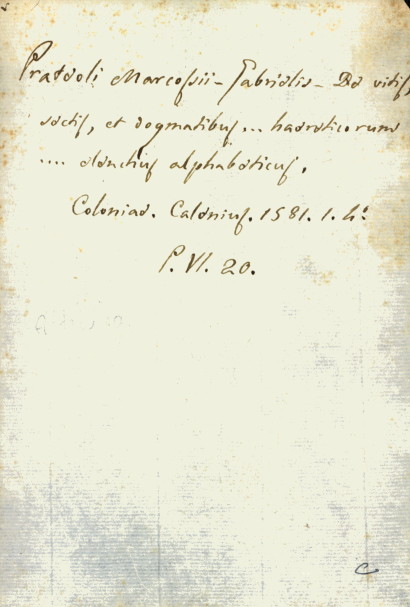 Prateoli Marcossii - Gabrielis - De vitis,
sectis, et dogmatibus... haereticorum
.... elenchus alphabeticus.
Coloniae. Calenius. 1581. 1. 4º
P. VI. 20.
C